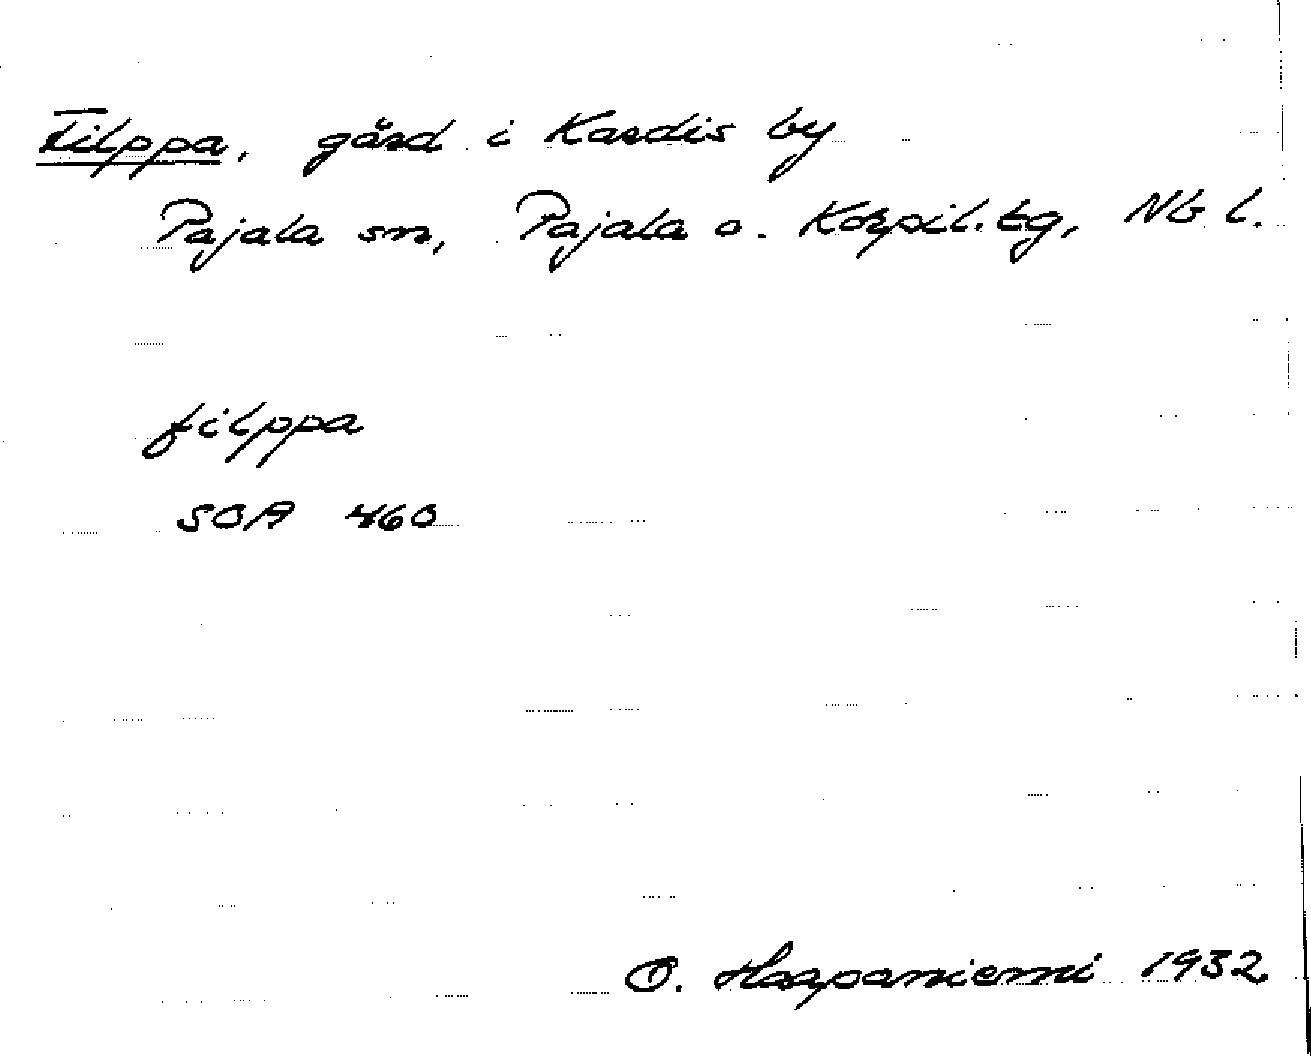 Filppa, gård i Kardis by
Pajala sn, Pajala o. Korpil. tg, Nb l.
filppa
SOA 460
O. Haapaniemi 1932